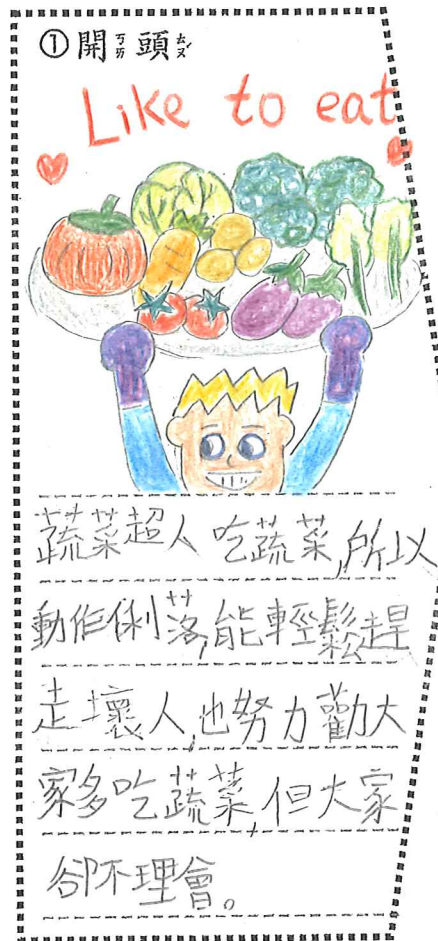 ①開ㄎㄞ頭ㄊㄡˊ
Like to eat
蔬菜超人 吃蔬菜,所以
動作俐落,能輕鬆趕
走壞人,也努力勸大
家多吃蔬菜,但大家
卻不理會。